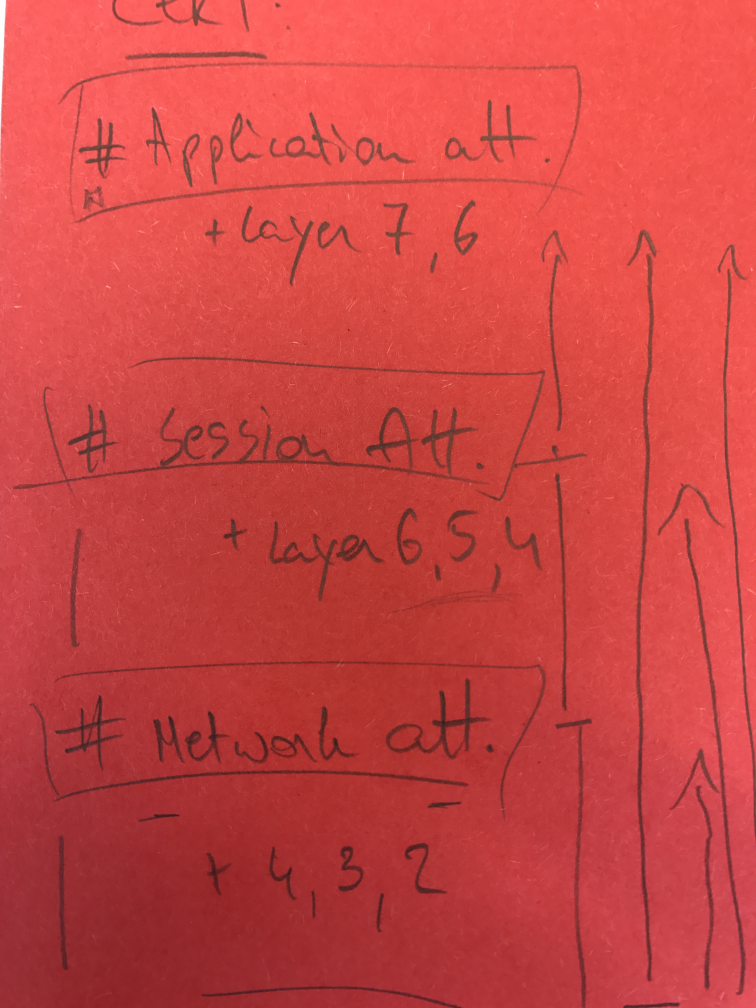 CERT.
# Application att.
+ Layer 7, 6
# Session Att.
+ Layer 6, 5, 4
# Network att.
+ 4, 3, 2